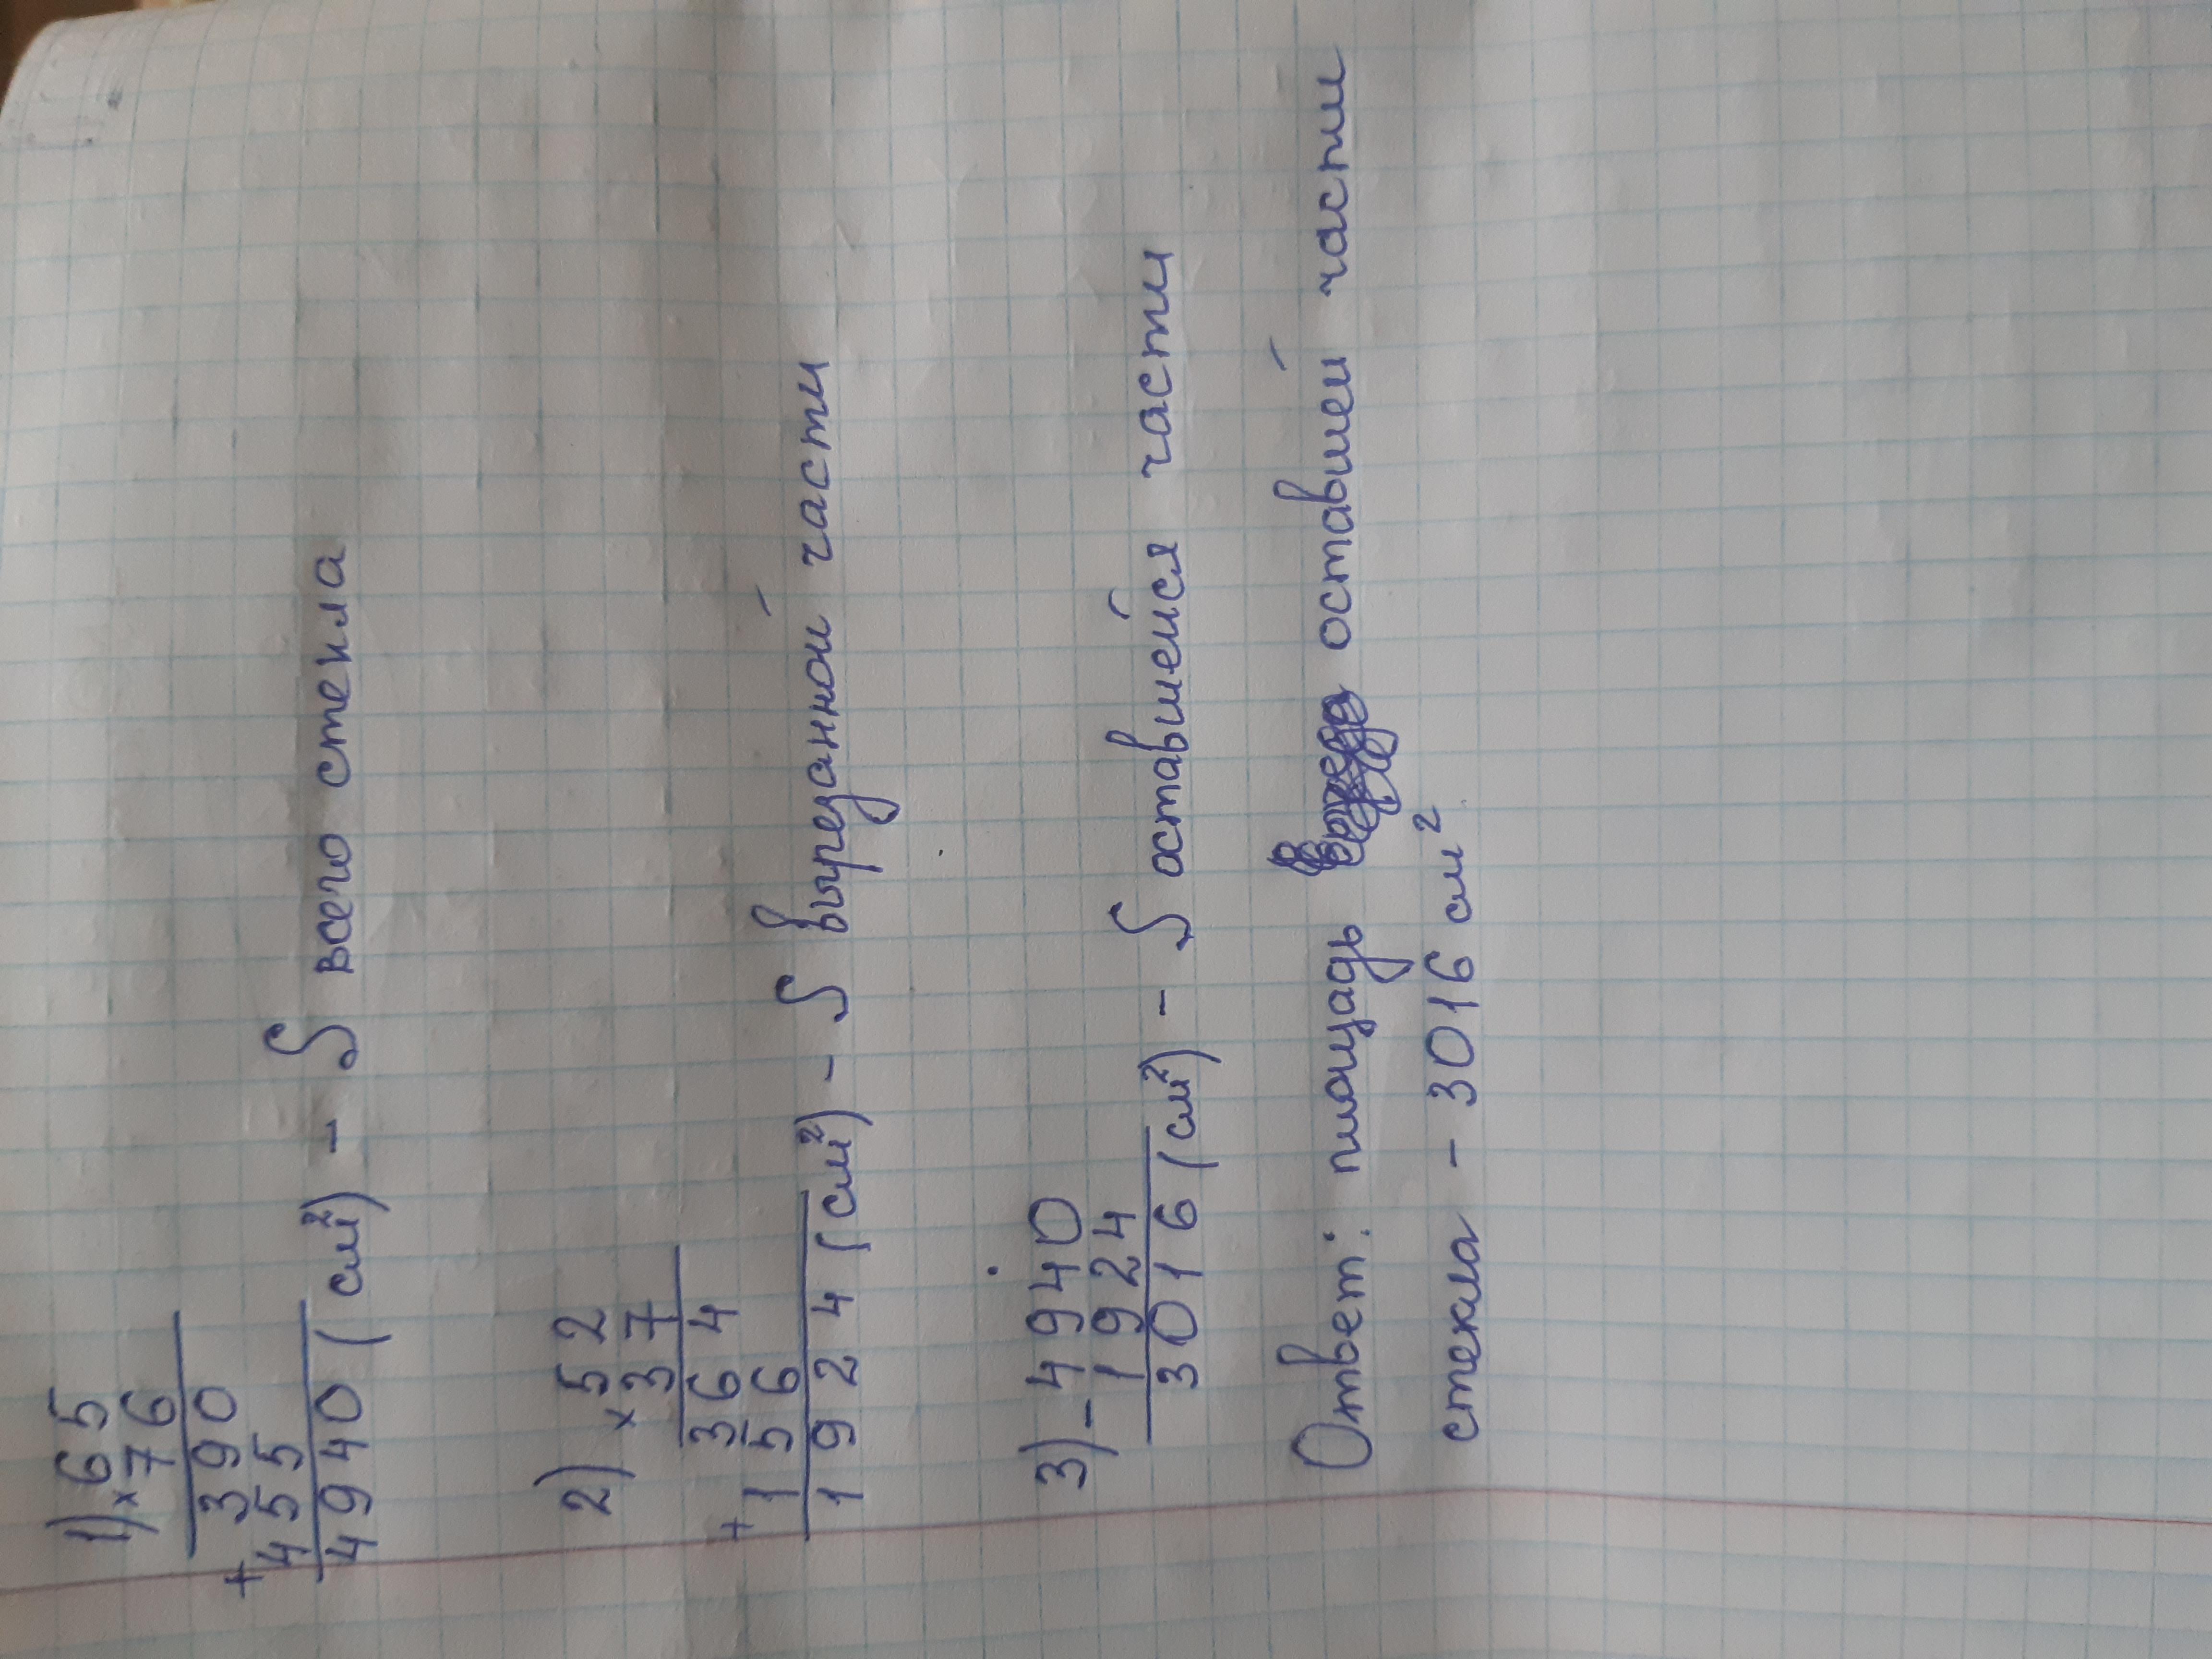 1) × 65
76
390
+ 455
4940 (см²) - S всего стекла
2) × 52
37
364
+ 156
1924 (см²) - S вырезанной части
3) - 4940
1924
3016 (см²) - S оставшейся части
Ответ: площадь оставшей части
стекла - 3016 см²